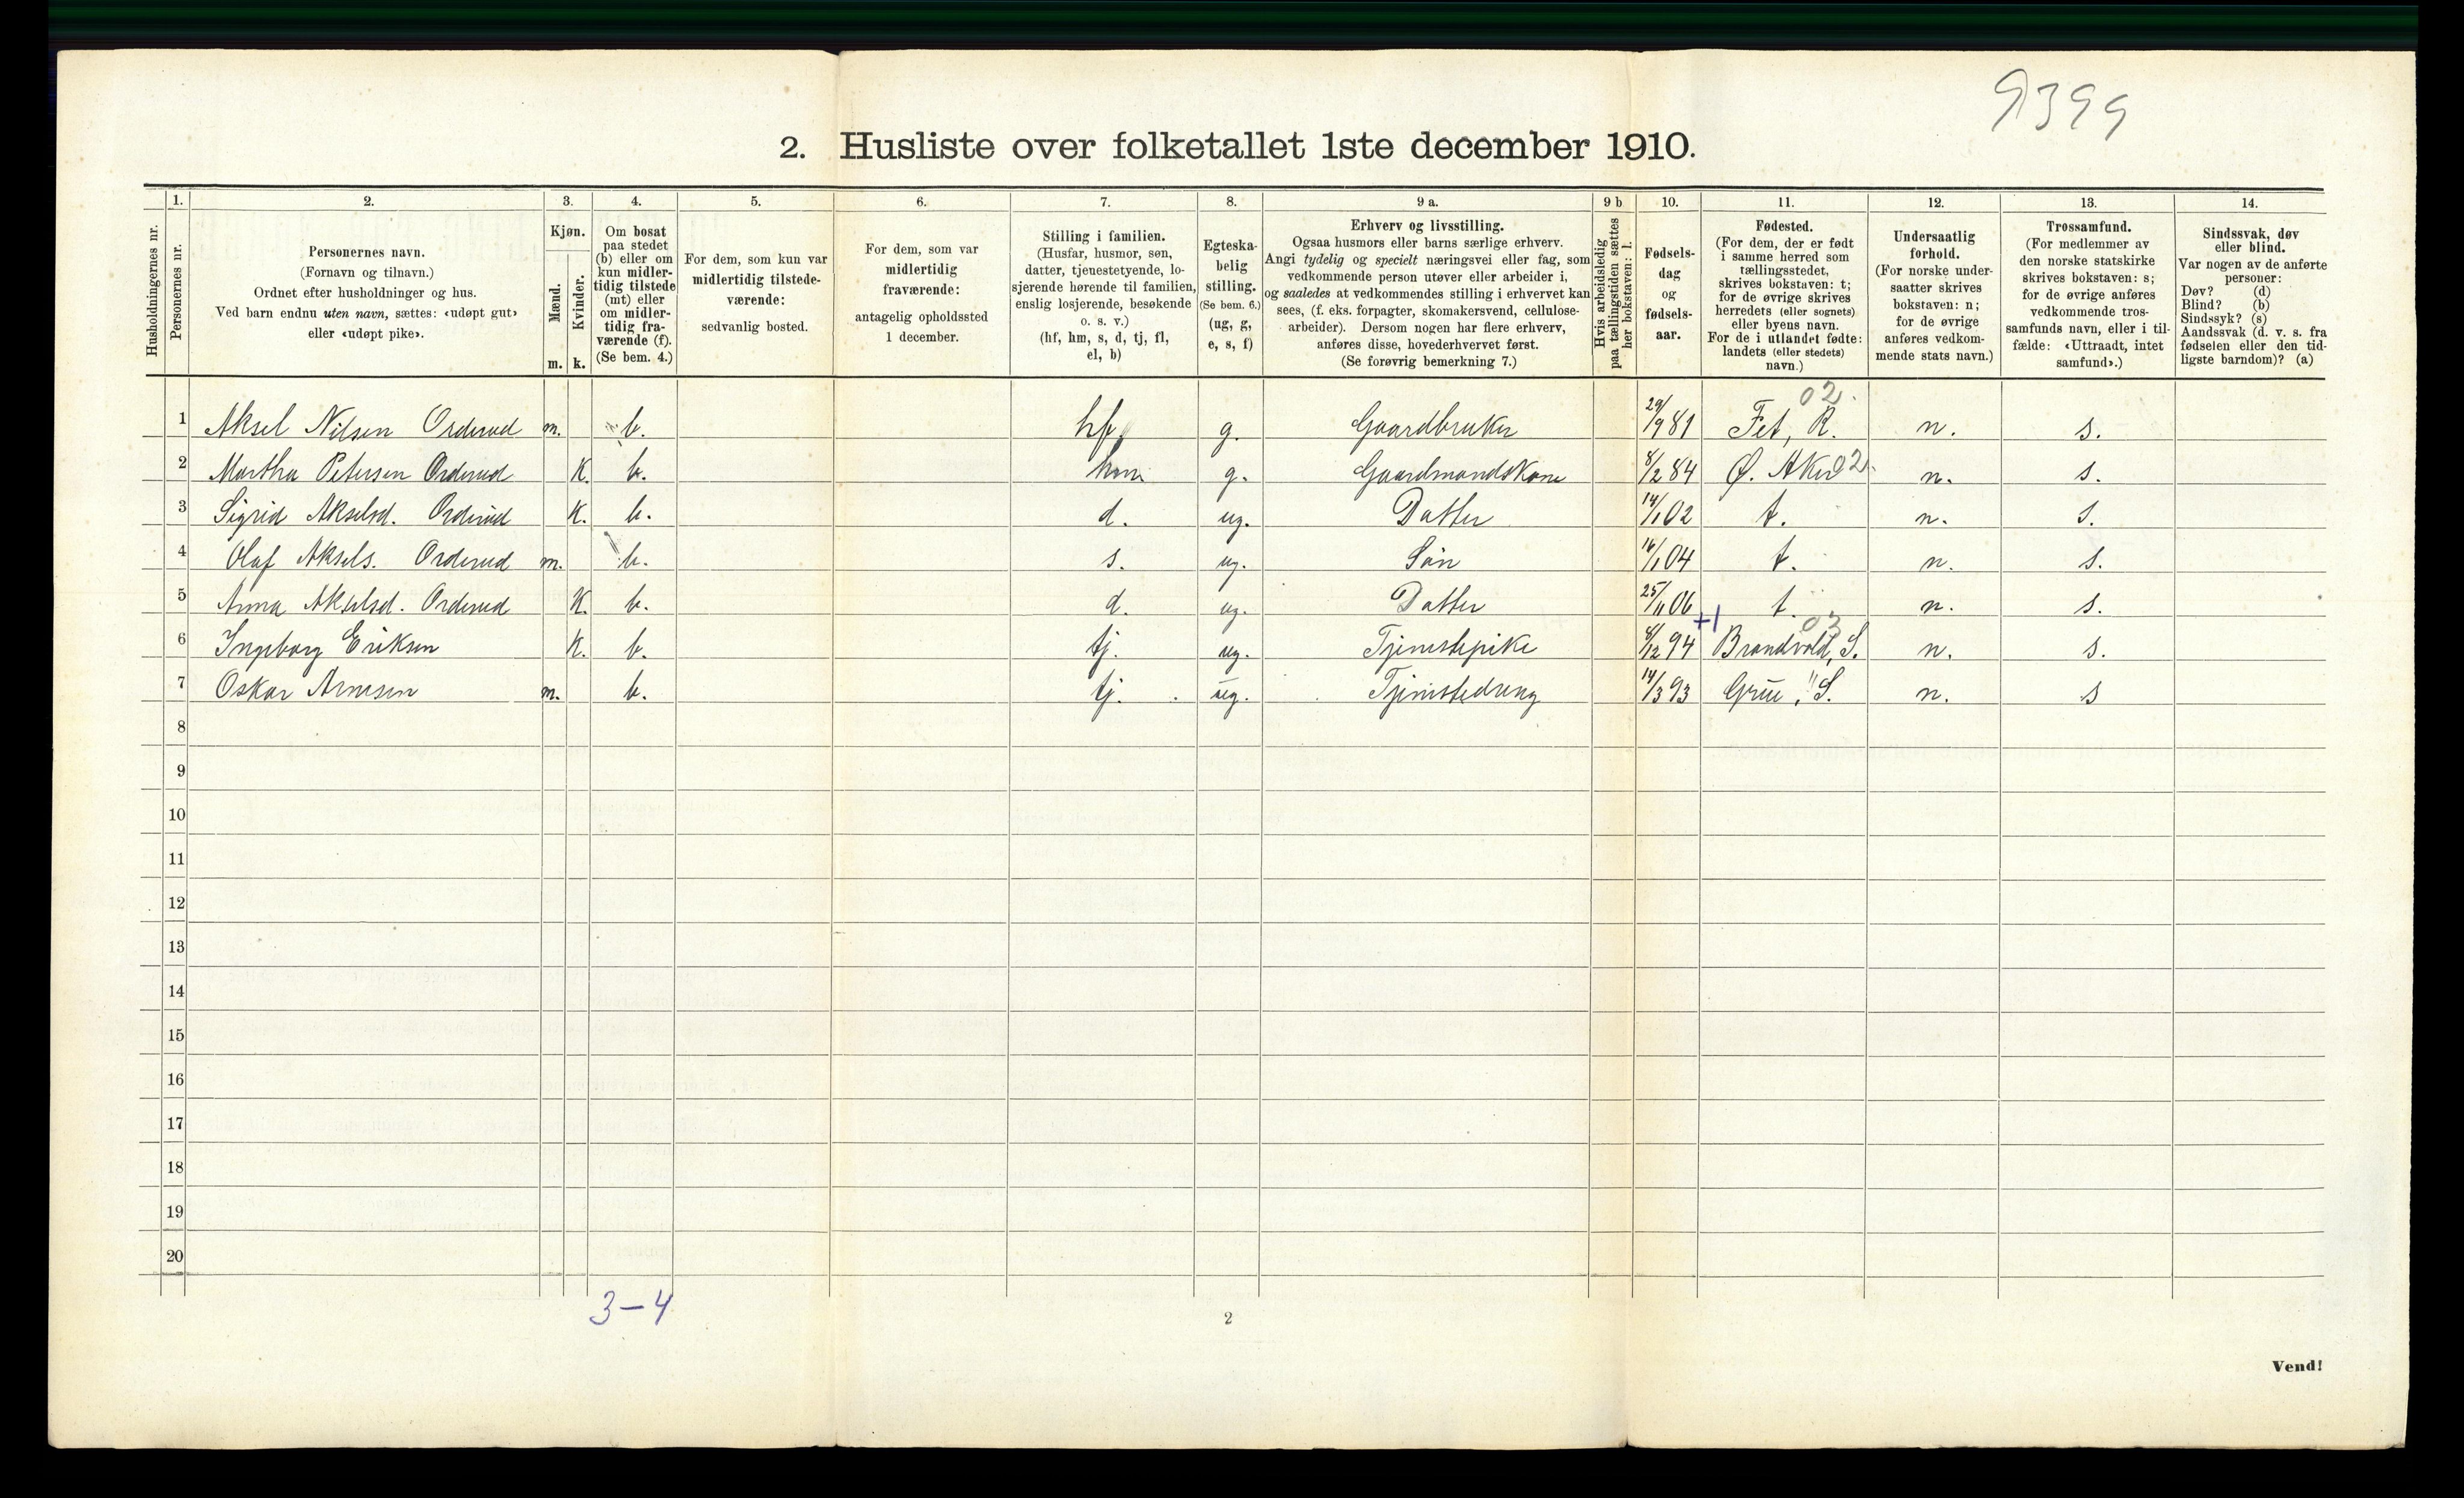 9399
2. Husliste over folketallet 1ste december 1910.
Husholdningernes nr.
1. Personernes nr.
2. Personernes navn.
(Fornavn og tilnavn.)
Ordnet efter husholdninger og hus.
Ved barn endnu uten navn, sættes: «udøpt gut»
eller «udøpt pike».
3. Kjøn.
Mænd. m.
Kvinder. k.
4. Om bosat
paa stedet
(b) eller om
kun midler-
tidig tilstede
(mt) eller
om midler-
tidig fra-
værende (f).
(Se bem. 4.)
5. For dem, som kun var
midlertidig tilstede-
værende:
sedvanlig bosted.
6. For dem, som var
midlertidig
fraværende:
antagelig opholdssted
1 december.
7. Stilling i familien.
(Husfar, husmor, søn,
datter, tjenestetyende, lo-
sjerende hørende til familien,
enslig losjerende, besøkende
o. s. v.)
(hf, hm, s, d, tj, fl,
el, b)
8. Egteska-
belig
stilling.
(Se bem. 6.)
(ug, g,
e, s, f)
9 a. Erhverv og livsstilling.
Ogsaa husmors eller barns særlige erhverv.
Angi tydelig og specielt næringsvei eller fag, som
vedkommende person utøver eller arbeider i,
og saaledes at vedkommendes stilling i erhvervet kan
sees, (f. eks. forpagter, skomakersvend, cellulose-
arbeider). Dersom nogen har flere erhverv,
anføres disse, hovederhvervet først.
(Se forøvrig bemerkning 7.)
9 b Hvis arbeidsledig
paa tællingstiden sættes
her bokstaven: l.
10. Fødsels-
dag
og
fødsels-
aar.
11. Fødested.
(For dem, der er født
i samme herred som
tællingsstedet,
skrives bokstaven: t;
for de øvrige skrives
herredets (eller sognets)
eller byens navn.
For de i utlandet fødte:
landets (eller stedets)
navn.)
12. Undersaatlig
forhold.
(For norske under-
saatter skrives
bokstaven: n;
for de øvrige
anføres vedkom-
mende stats navn.)
13. Trossamfund.
(For medlemmer av
den norske statskirke
skrives bokstaven: s;
for de øvrige anføres
vedkommende tros-
samfunds navn, eller i til-
fælde: «Uttraadt, intet
samfund».)
14. Sindssvak, døv
eller blind.
Var nogen av de anførte
personer:
Døv? (d)
Blind? (b)
Sindssyk? (s)
Aandssvak (d. v. s. fra
fødselen eller den tid-
ligste barndom)? (a)
02.
1 Aksel Nilsen Orderud m. b. hf. g. Gaardbruker 29/9 81 Fet, R. n. s.
2 Martha Petersen Orderud K. b. hm. g. GaardmandsKone 8/2 84 Ø. Aker 02. n. s.
3 Sigrid Akselsd. Orderud K. b. d. ug. Datter 14/1 02 t. n. s.
4 Olaf Aksels. Orderud m. b. s. ug. Søn 16/1 04 t. n. s.
5 Anna Akselsd. Orderud K. b. d. ug. Datter 25/11 06 t. n. s.
+1 03
6 Ingeborg Eriksen K. b. tj. ug. Tjenestepike 8/12 94 Brandvold, S. n. s.
7 Oskar Arnesen m. b. tj. ug. Tjenestedreng 14/3 93 Grue, " S. n. s
8
9
10
11
12
13
14
15
16
17
18
19
20
3-4
2
Vend!